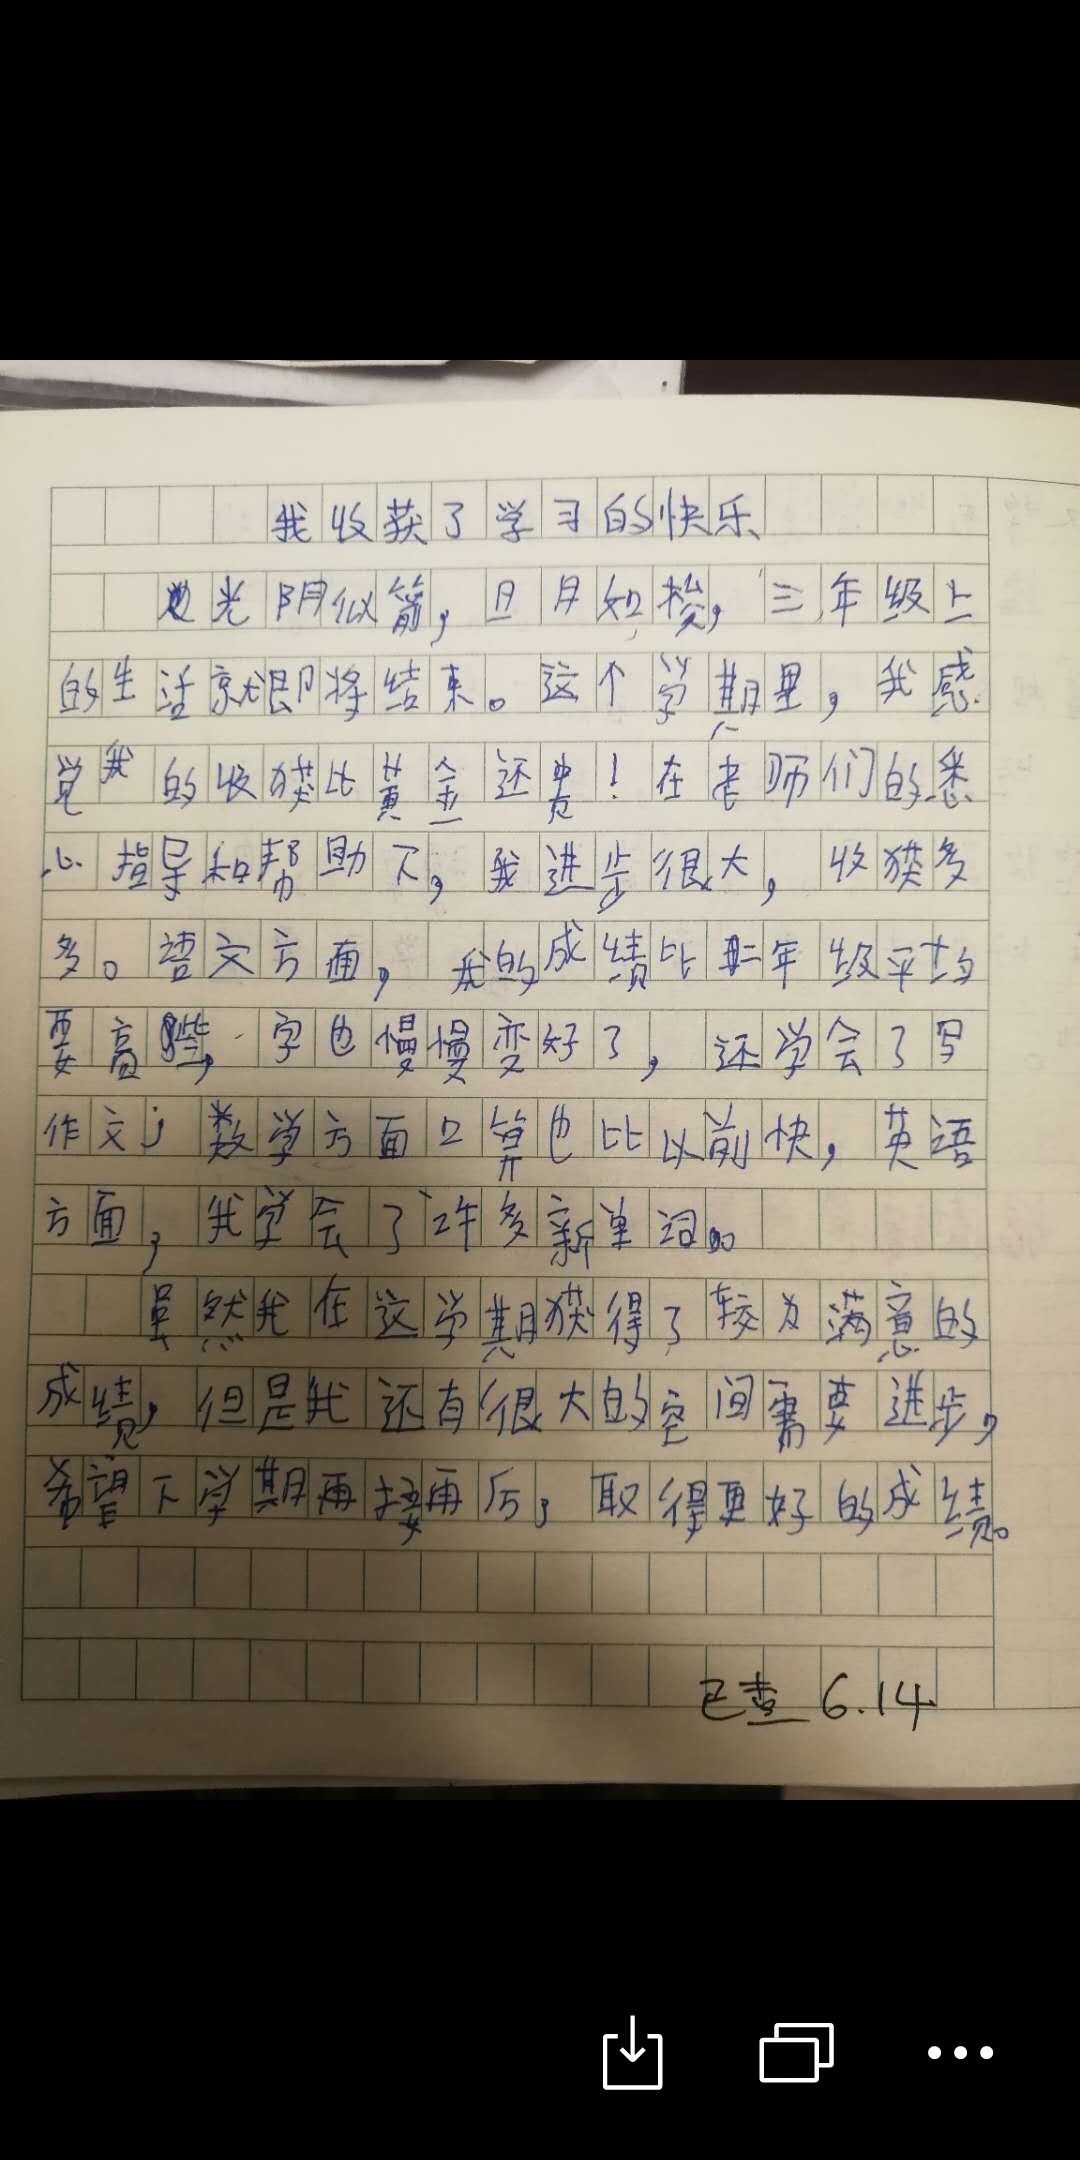 我收获了学习的快乐
光阴似箭，日月如梭，三年级上
的生活就即将结束。这个学期里，我感
觉我的收获比黄金还贵！在老师们的悉
心指导和帮助下，我进步很大，收获多
多。语文方面，我的成绩比二年级平均
要高些，字也慢慢变好了，还学会了写
作文；数学方面口算也比以前快，英语
方面，我学会了许多新单词。
虽然我在这学期获得了较为满意的
成绩，但是我还有很大的空间需要进步，
希望下学期再接再厉，取得更好的成绩。
已查 6.14